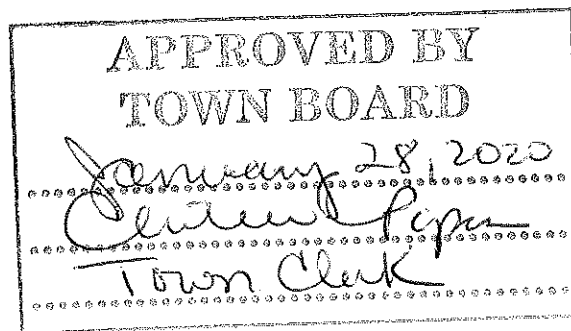 APPROVED BY
TOWN BOARD
January 28, 2020
Town Clerk